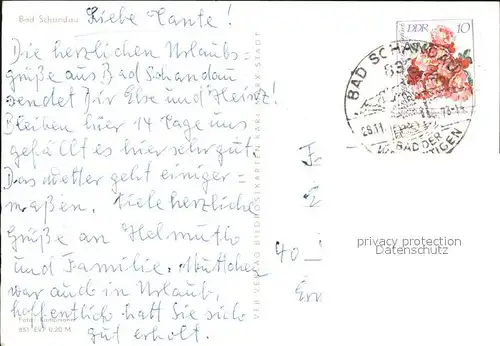 Bad Schandau
Liebe Tante!
Die herzlichen Urlaubs=
grüße aus Bad Schandau
sendet Dir Else und Heinz!
Bleiben hier 14 Tage uns
gefällt es hier sehr gut.
Das Wetter geht einiger=
maßen. Viele herzliche
Grüße an Helmuth
und Familie. Muttchen
war auch in Urlaub,
hoffentlich hatt Sie sich
gut erholt.
VEB VERLAG BILDPOSTKARTEN KARL-MARX-STADT
DDR 10
BAD SCHANDAU
832
BAD DER
40
privacy protection
www.oldthing.de